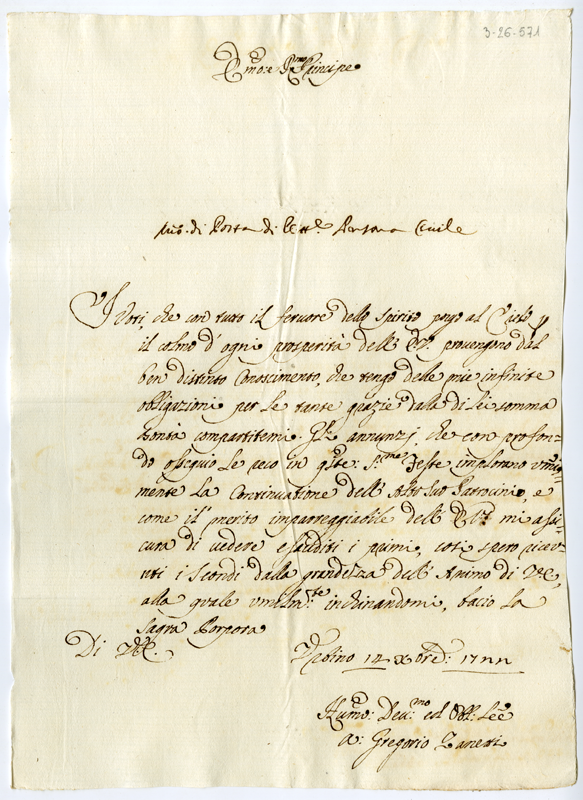 3-26-571
Emo: e Rmo Principe
di Posta di Persona Civile
I Voti, che con tutto il fervore dello Spirito porgo al Cielo p
il colmo d'ogni prosperità dell' E.V. provengono dal
ben distinto Conoscimento, che tengo delle mie infinite
obligazioni per le tante grazie dalla di Lei somma
bontà compartitemi. Gl' annunzj, che con profon=
do ossequio Le reco in qste: Sme Feste implorano umil
mente La Continuazione dell' Alto Suo Patrocinio, e
come il merito impareggiabile dell' E.V. mi assi
cura di vedere esauditi i primi, così spero ricevu
ti i Secondi dalla grandezza dell' Animo di V.E.,
alla quale umilmte inchinandomi, bacio La
Sagra Porpora
Di V.E.
Urbino 14 Xbre: 17
Humo: Devmo ed Obl:
Gregorio